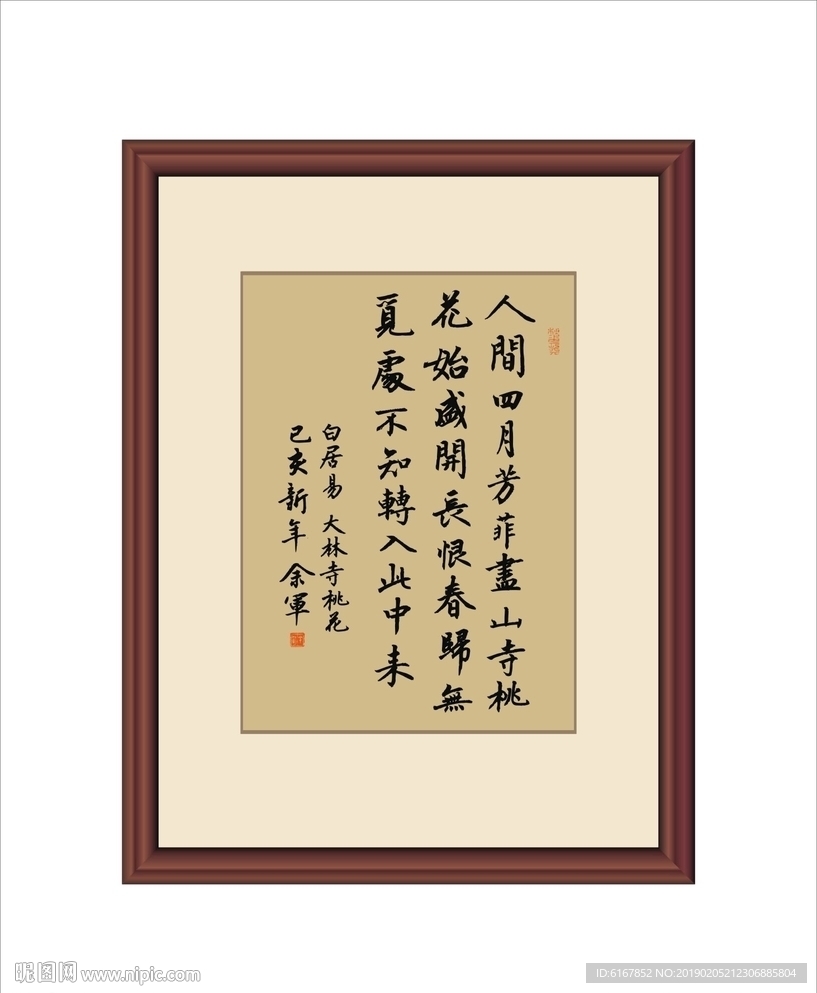 人間四月芳菲盡山寺桃
花始盛開長恨春歸無
覓處不知轉入此中来
白居易 大林寺桃花
己亥新年 余軍
昵图网 www.nipic.com
ID:6167852 NO:20190205212306885804